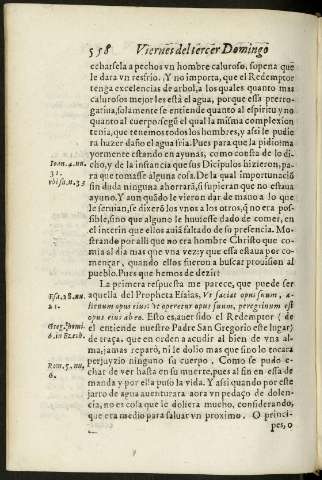 558 Viernes del tercer Domingo
echarsela a pechos vn hombre caluroso, sopena que
le dara vn resfrio. Y no importa, que el Redemptor
tenga excelencias de arbol, a los quales quanto mas
calurosos mejor les està el agua, porque essa prerro-
gatina, solamente se entiende quanto al espiritu y no
quanto al cuerpo, segũ el qual la misma complexion
tenia, que tenemos todos los hombres, y assi le pudie
ra hazer daño el agua fria. Pues para que la pidio ma
yormente estando en ayunas, como consta de lo di-
Ioan. 4. nu.
31.
cho, y de la instancia que sus Dicipulos hizieron, pa-
ra que tomasse alguna cosa. De la qual importunaciõ
vbi su. n. 35
sin duda ninguna ahorrarã, si supieran que no estaua
ayuno. Y aun quãdo le vieron dar de mano a lo que
le seruian, se dixerõ los vnos a los otros, q̃ no era pos
sible, sino que alguno le huuiesse dado de comer, en
el interin que ellos auiã salteado de su presencia. Mo
strando por alli que no era hombre Christo que co-
mia al dia mas que vna vez: y que essa estaua por co-
mençar, quando ellos fueron a buscar prouision al
pueblo. Pues que hemos de dezir?
La primera respuesta me parece, que puede ser
Esa. 28. nu.
21.
aquella del Propheta Esaias, Vt faciat opus suum, a-
lienum opus eius: vt operetur opus suum, peregrinum est
opus eius ab eo. Esto es, auer sido el Redemptor (de
Greg. homi-
6. in Ezech.
el entiende nuestro Padre San Gregorio este lugar)
de traça, que en orden a acudir al bien de vna al-
ma, jamas reparò, ni le dolio mas que si no le tocara
perjuyzio ninguno su cuerpo. Como se pudo e-
Rom. 5. nu.
6.
char de ver hasta en su muerte, pues al fin en essa de
manda y por ella puso la vida. Y assi quando por este
jarro de agua auenturara aora vn pedaço de dolen-
cia, no es cosa que le doliera mucho, considerando,
que era medio para saluar vn proximo. O princi-
pes, o